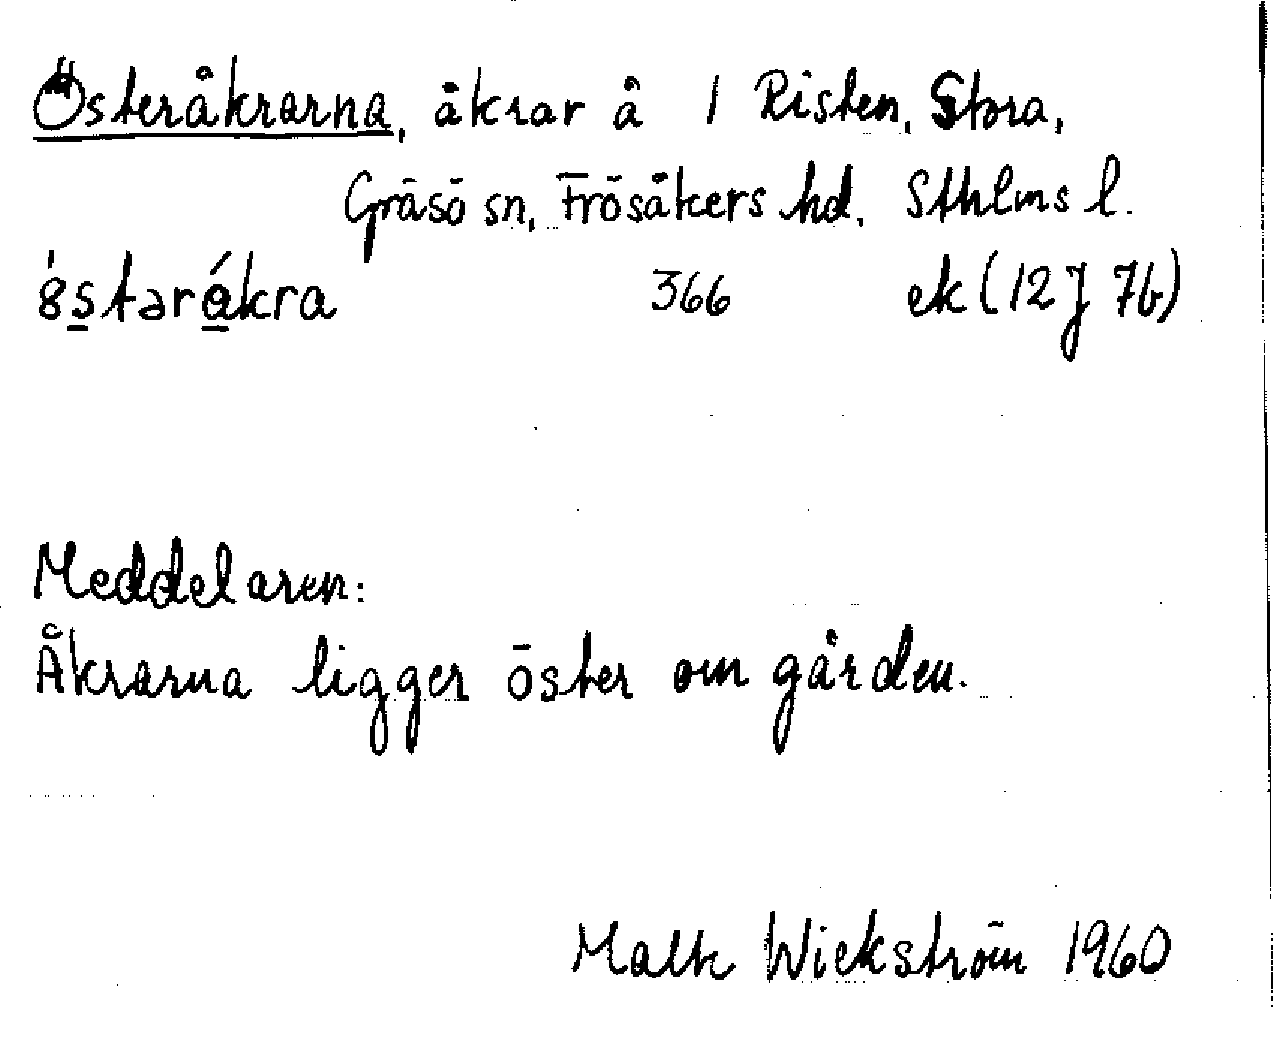 Österåkrarna, åkrar å 1 Risten, Stora,
Gräsö sn, Frösåkers hd, Sthlms l.
366 ek (12J 7b)
Meddelaren:
Åkrarna ligger öster om gården.
Wickström 1960